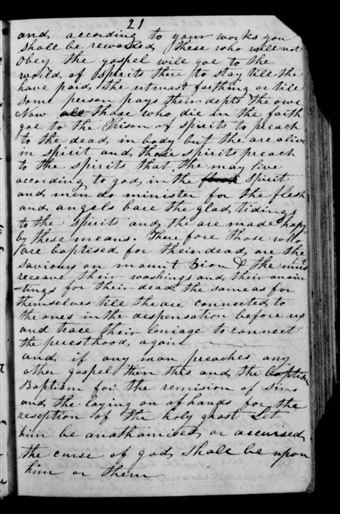 21
and according to your works you
shall be rewarded, these who will not
obey the gospel will goe to the
world of spirits there to stay till the
have paid the utmost farthing or till
some person pays their depts the owe
Now all those who die in the faith
goe to the Prison of spirits to preach
to the dead, in body but the are alive
in spirit and those spirits preach
to the spirits that the may live
according to god, in the spirit
and men do minister for the flesh
and angels bare the glad, tidings
to the spirit and the are made happy
by these means. Therefore those who
are baptised for their dead, are the
saviours on mount Zion & the must
receave their washings and their anoin
tings for their dead the same as for
themselves till the are connected to
the ones in the despensation before us
and trace their leniage to connect
the priesthood, again
and if any man preaches any
other gospel then this and, the
Baptism for the remision of Sins
and the laying on of hands for the
reseption of the holy ghost Let
him be anathamised or accursed
the curse of god shall be upon
him or them